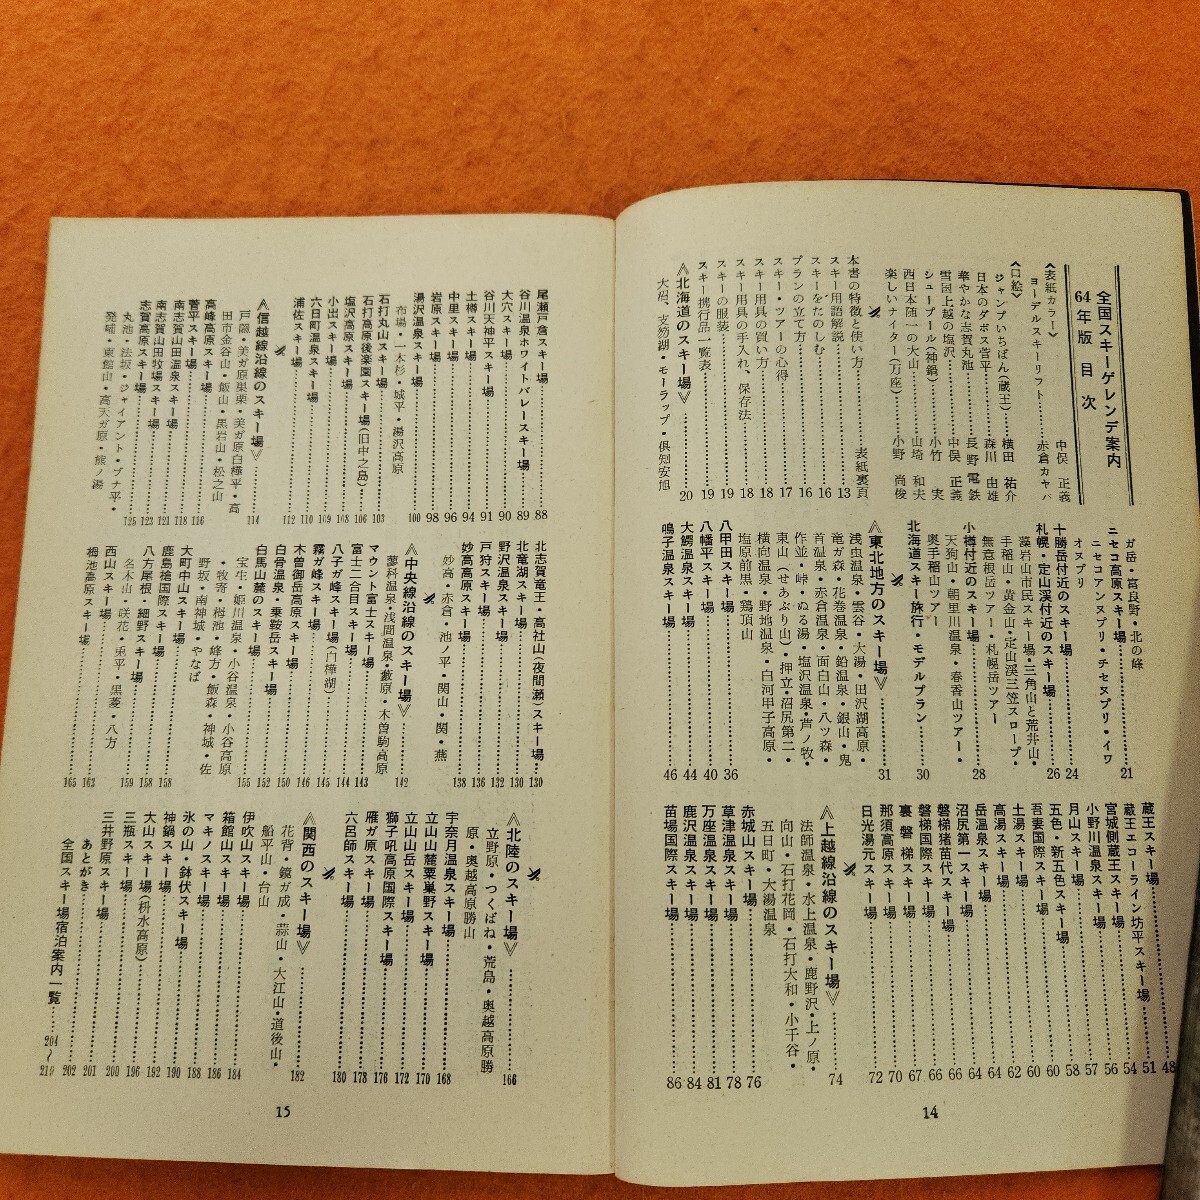 全国スキーゲレンデ案内
64年版 目次
《表紙カラー》
ヨーデルスキーリフト……赤倉カヤバ
中俣 正義
《口絵》
ジャンプいちばん(蔵王)……横田 祐介
日本のダボス菅平……森川 由雄
華やかな志賀丸池……長野電鉄
雪国上越の塩沢……中俣 正義
シュプール(神鍋)……小竹 実
西日本随一の大山……山埼 和夫
楽しいナイター(万座)……小野 尚俊
本書の特徴と使い方……表紙裏頁
スキー用語解説……13
スキーをたのしむ……16
プランの立て方……16
スキー・ツアーの心得……17
スキー用具の買い方……18
スキー用具の手入れ、保存法……18
スキーの服装……19
スキー携行品一覧表……19
《北海道のスキー場》……20
大沼、支笏湖・モーラップ・倶知安旭
ガ岳・富良野・北の峰
ニセコ高原スキー場……21
ニセコアンヌプリ・チセヌプリ・イワ
オヌプリ
十勝岳付近のスキー場……24
札幌・定山渓付近のスキー場……26
藻岩山市民スキー場・三角山と荒井山・
手稲山・黄金山・定山渓三笠スロープ・
無意根岳ツアー・札幌岳ツアー
小樽付近のスキー場……28
天狗山・朝里川温泉・春香山ツアー・
奥手稲山ツアー
北海道スキー旅行・モデルプラン……30
《東北地方のスキー場》……31
浅虫温泉・雲谷・大湯・田沢湖高原・
竜ガ森・花巻温泉・鉛温泉・銀山・鬼
首温泉・赤倉温泉・面白山・八ツ森・
作並・峠・ぬる湯・塩沢温泉・芦ノ牧・
東山(せあぶり山)・押立・沼尻第二・
横向温泉・野地温泉・白河甲子高原・
塩原前黒・鶏頂山
八甲田スキー場……36
八幡平スキー場……40
大鰐温泉スキー場……44
鳴子温泉スキー場……46
蔵王スキー場……48
蔵王エコーライン坊平スキー場……51
宮城側蔵王スキー場……54
小野川温泉スキー場……56
月山スキー場……57
五色・新五色スキー場……58
吾妻国際スキー場……60
土湯スキー場……60
高湯スキー場……62
岳温泉スキー場……64
沼尻第一スキー場……64
磐梯猪苗代スキー場……66
磐梯国際スキー場……66
裏磐梯スキー場……67
那須高原スキー場……70
日光湯元スキー場……72
《上越線沿線のスキー場》……74
法師温泉・水上温泉・鹿野沢・上ノ原・
向山・石打花岡・石打大和・小千谷・
五日町・大湯温泉
赤城山スキー場……76
草津温泉スキー場……78
万座温泉スキー場……81
鹿沢温泉スキー場……84
苗場国際スキー場……86
14
尾瀬戸倉スキー場……88
谷川温泉ホワイトバレースキー場……89
大穴スキー場……90
谷川天神平スキー場……91
土樽スキー場……94
中里スキー場……96
岩原スキー場……98
湯沢温泉スキー場……100
布場・一本杉・城平・湯沢高原
石打丸山スキー場……103
石打高原後楽園スキー場(旧中之島)……106
塩沢高原スキー場……108
小出スキー場……109
六日町温泉スキー場……110
浦佐スキー場……112
《信越線沿線のスキー場》……114
戸隠・美ガ原巣栗・美ガ原白樺平・高
田市金谷山・飯山・黒岩山・松之山
高峰高原スキー場
菅平スキー場……116
南志賀山田温泉スキー場……118
南志賀山田牧場スキー場……121
志賀高原スキー場……123
丸池・法坂・ジャイアント・ブナ平・……125
発哺・東館山・高天ガ原・熊ノ湯
北志賀竜王・高社山(夜間瀬)スキー場……130
北竜湖スキー場……130
野沢温泉スキー場……132
戸狩スキー場……136
妙高高原スキー場……138
妙高・赤倉・池ノ平・関山・関・燕
《中央線沿線のスキー場》……142
蓼科温泉・浅間温泉・藪原・木曽駒高原
マウント富士スキー場……143
富士二合目スキー場……144
八子ガ峰スキー場(白樺湖)……145
霧ガ峰スキー場……145
木曽御岳高原スキー場……146
白骨温泉・乗鞍岳スキー場……150
白馬山麓のスキー場……152
宝生・姫川温泉・小谷温泉・小谷高原……155
・牧寄・栂池・峰方・飯森・神城・佐
野坂・南神城・やなば
大町中山スキー場……158
鹿島槍国際スキー場……158
八方尾根・細野スキー場……159
名木山・咲花・兎平・黒菱・八方
西山スキー場……163
栂池高原スキー場……165
《北陸のスキー場》……166
立野原・つくばね・荒島・奥越高原勝
原・奥越高原勝山
宇奈月温泉スキー場……168
立山山麓粟巣野スキー場……170
立山山岳スキー場……172
獅子吼高原国際スキー場……176
雁ガ原スキー場……178
六呂師スキー場……180
《関西のスキー場》……182
花背・鏡ガ成・蒜山・大江山・道後山・
船平山・台山
伊吹山スキー場……184
箱館山スキー場……186
マキノスキー場……186
氷の山・鉢伏スキー場……188
神鍋スキー場……190
大山スキー場(枡水高原)……192
三瓶スキー場……196
三井野原スキー場……200
あとがき……201
全国スキー場宿泊案内一覧……204〜219
15